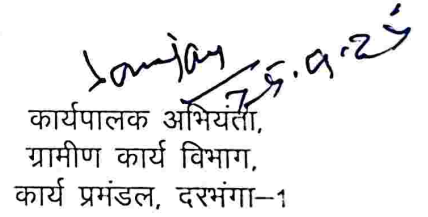 25.9.25
कार्यपालक अभियंता,
ग्रामीण कार्य विभाग,
कार्य प्रमंडल, दरभंगा-1